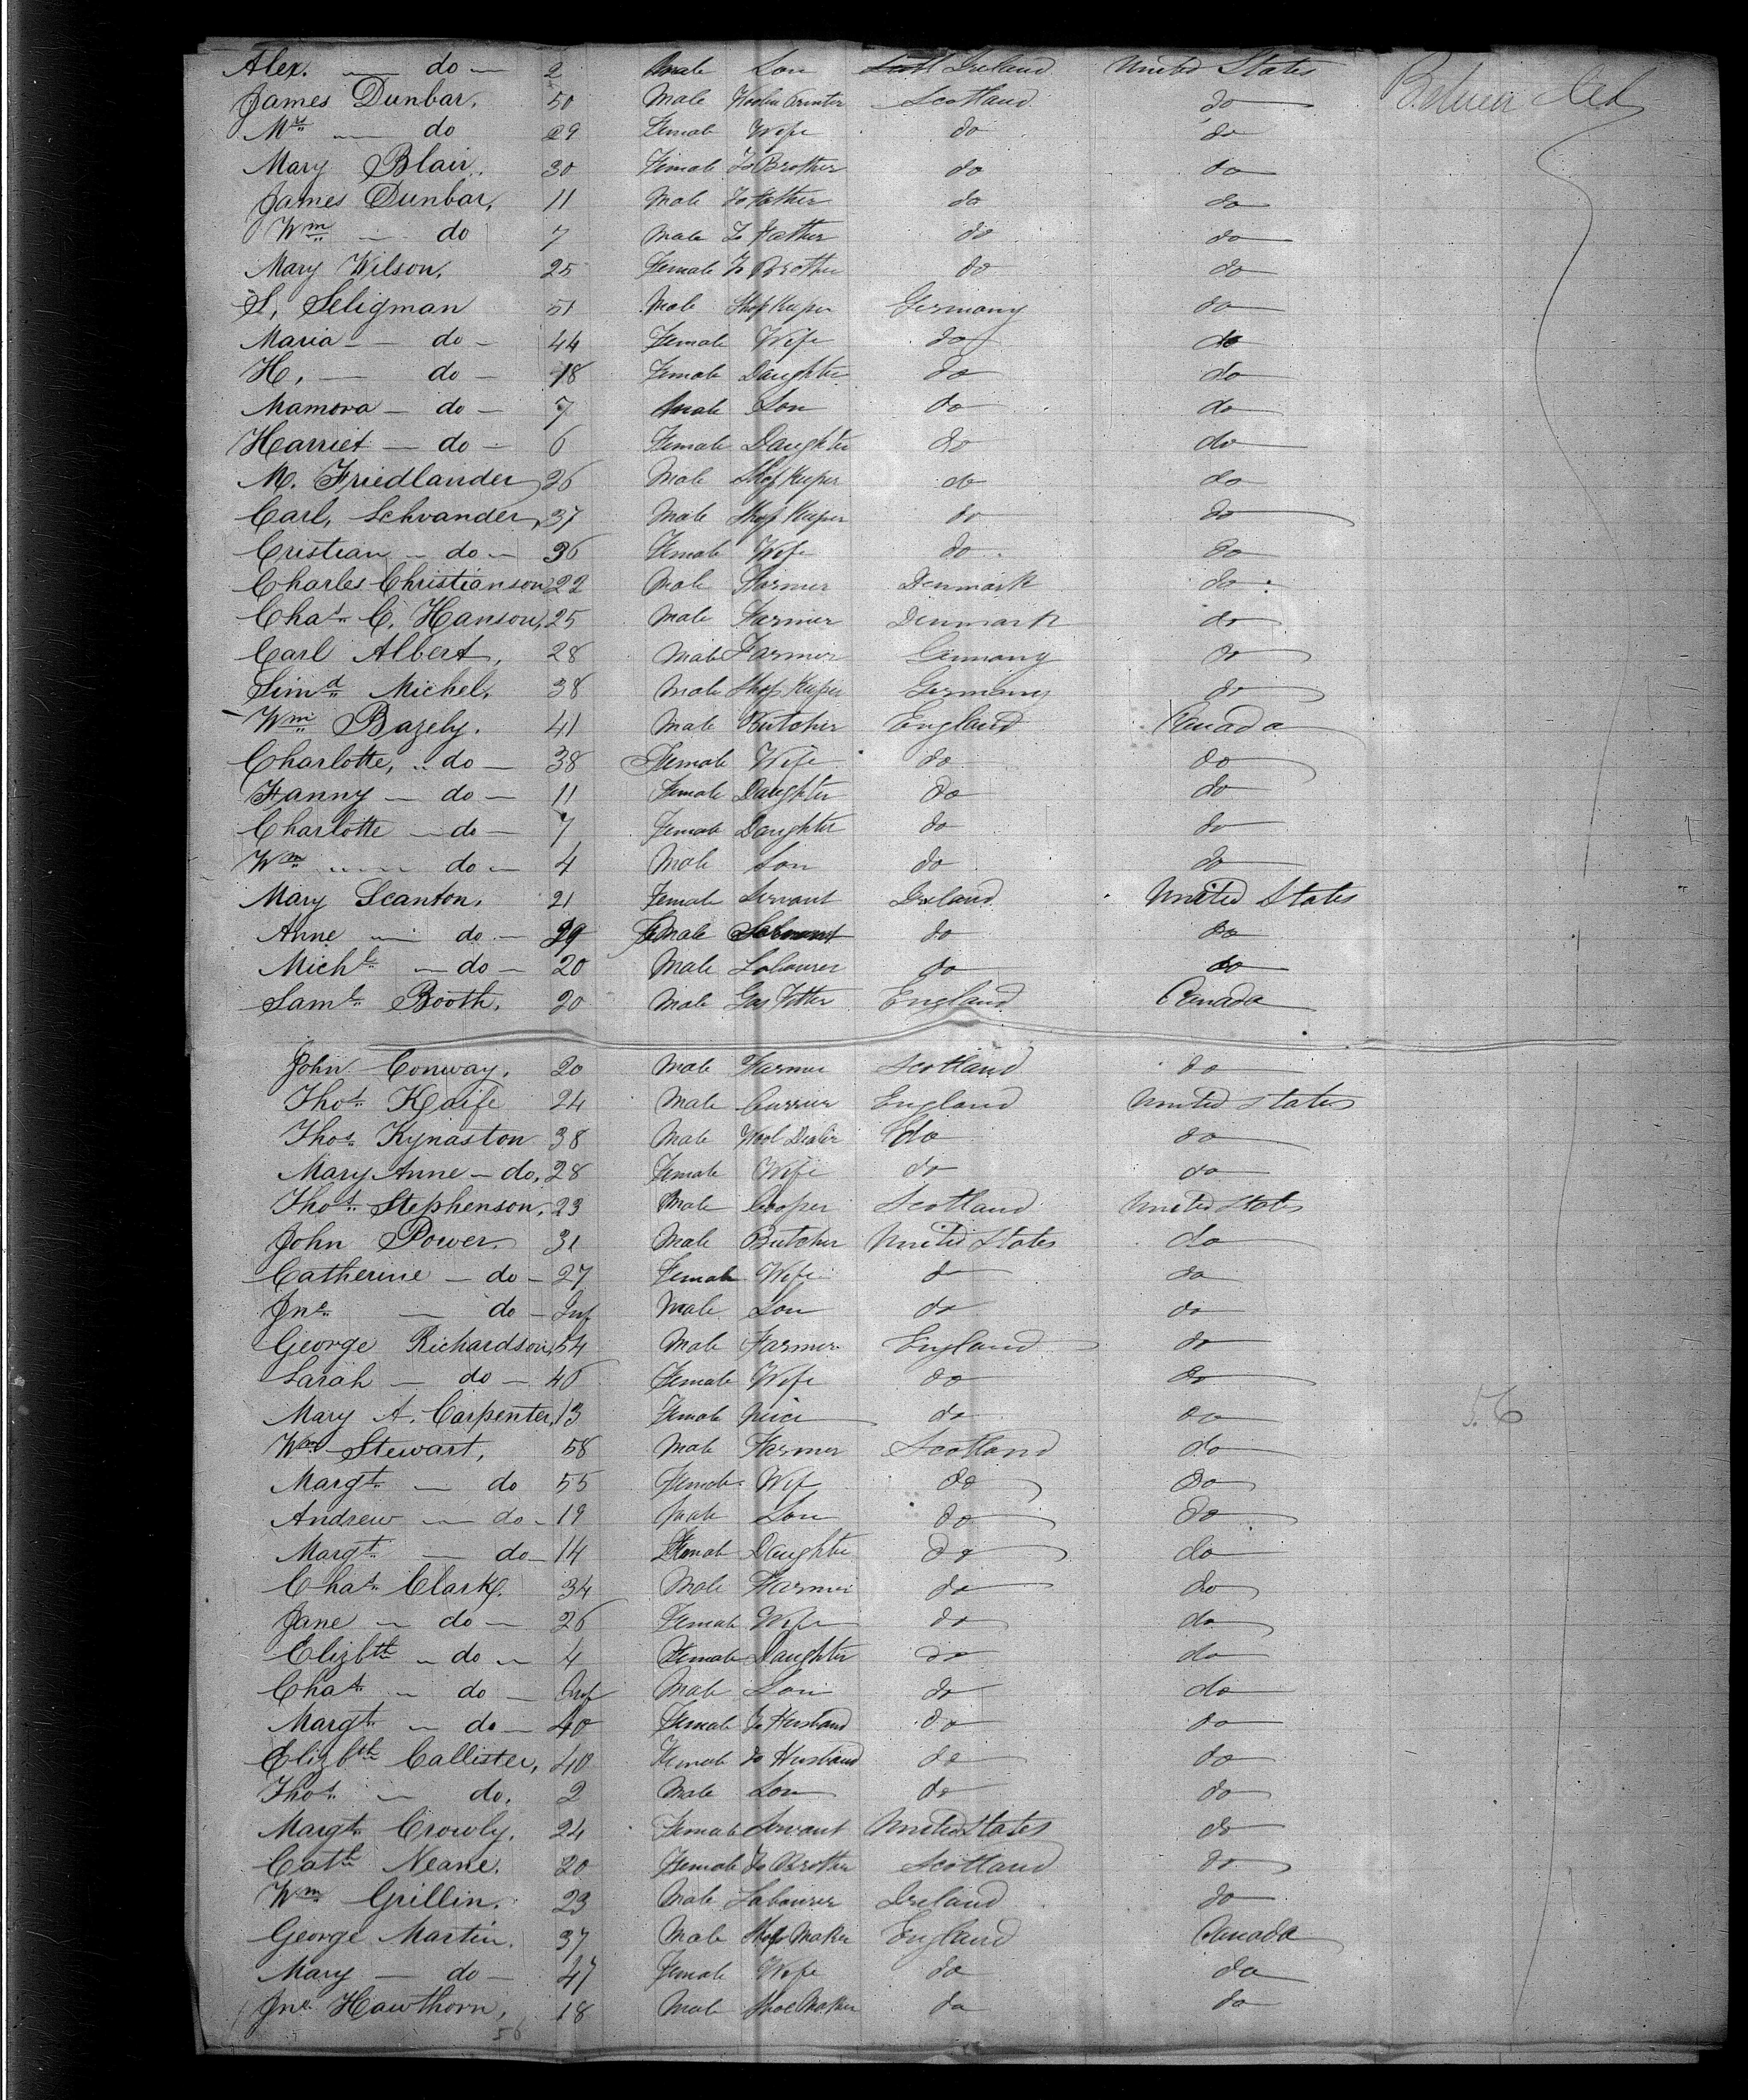 Alex. — do — 2 Male Son Ireland United States
James Dunbar, 50 Male Scotland do Between Deck
Mrs — do 29 Female Wife do do
Mary Blair. 30 Female To Brother do do
James Dunbar, 11 Male To Father do do
Wm — do 7 Male To Father do do
Mary Wilson, 25 Female To Brother do do
S, Seligman 51 Male Shop Keeper Germany do
Maria — do — 44 Female Wife do do
H, — do — 18 Female Daughter do do
Mamora — do — 7 Male Son do do
Harriet — do — 6 Female Daughter do do
M. Friedlander 26 Male Shop Keeper do do
Carl, Schvander, 37 Male Shop Keeper do do
Cristian — do — 36 Female Wife do do
Charles Christianson 22 Male Farmer Denmark do
Chas C, Hanson, 25 Male Farmer Denmark do
Carl Albert, 28 Male Farmer Germany do
Simd Michel, 38 Male Shop Keeper Germany do
Wm Bazely. 41 Male Butcher England Canada
Charlotte, — do — 38 Female Wife do do
Fanny — do — 11 Female Daughter do do
Charlotte — do — 7 Female Daughter do do
Wm — do — 4 Male Son do do
Mary Scanton, 21 Female Servant Ireland United States
Anne — do — 29 Female do do
Michl — do — 20 Male Labourer do do
Saml Booth, 20 Male Gas Fitter England Canada
John Conway, 20 Male Farmer Scotland do
Thos Knife 24 Male Currier England United States
Thos Kynaston 38 Male Wool Dealer do do
Mary Anne — do, 28 Female Wife do do
Thos Stephenson, 23 Male Cooper Scotland United States
John Power 31 Male Butcher United States do
Catherine — do — 27 Female Wife do do
Jno — do — Inf Male Son do do
George Richardson, 54 Male Farmer England do
Sarah — do — 46 Female Wife do do
Mary A. Carpenter, 13 Female Neice do do
Wm Stewart, 58 Male Farmer Scotland do
Margt — do 55 Female Wife do do
Andrew — do — 19 Male Son do do
Margt — do — 14 Female Daughter do do
Chas Clark, 34 Male Farmer do do
Jane — do — 26 Female Wife do do
Elizbth — do — 4 Female Daughter do do
Chas — do — Inf Male Son do do
Margt — do — 40 Female To Husband do do
Elizbth Callister, 40 Female To Husband do do
Thos — do, 2 Male Son do do
Margt Crowly, 24 Female Servant United States do
Cath Neane. 20 Female To Brother Scotland do
Wm Grillin, 23 Male Labourer Ireland do
George Martin. 37 Male Maker England Canada
Mary — do — 47 Female Wife do do
Jno Hawthorn, 18 Male Shoe Maker do do
56